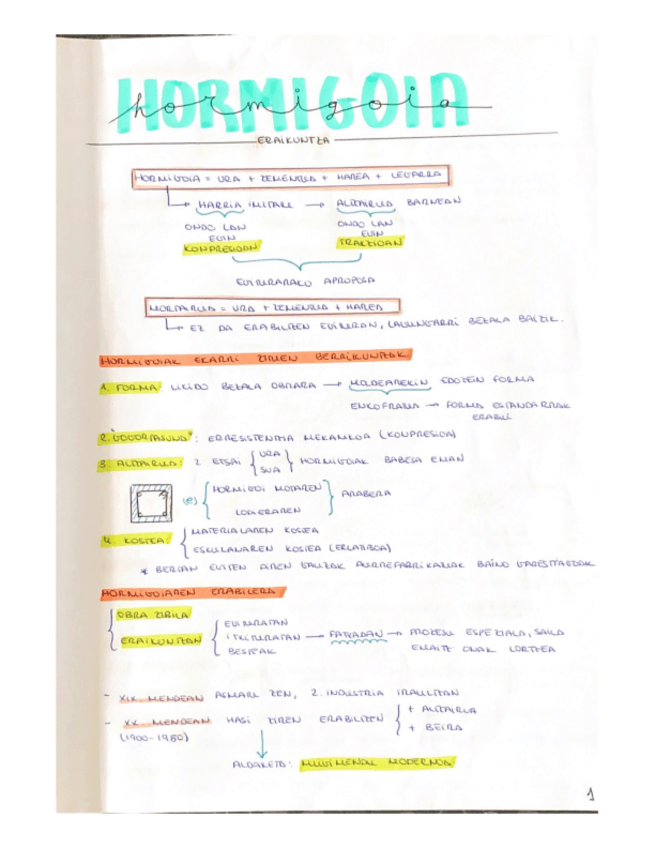 HORMIGOIA
hormigoia
ERAIKUNTZA
HORMIGOIA = URA + ZEMENTUA + HAREA + LEGARRA
HARRIA IMITATU → ALTZAIRUA BARNEAN
ONDO LAN EGIN KONPRESIOAN
ONDO LAN EGIN TRAKZIOAN
EGITURARAKO APROPOSA
MORTAIRUA = URA + ZEMENTUA + HAREA
EZ DA ERABILTZEN EGITURAN, LAGUNGARRI BEZALA BAIZIK.
HORMIGOIAK EKARRI ZITUEN BERRIKUNTZAK
1. FORMA: LIKIDO BEZALA OBRARA → MOLDEAREKIN EDOZEIN FORMA
ENKOFRATUA → FORMA ESTANDARRAK ERABILI
2. "GOGORTASUNA": ERRESISTENTZIA MEKANIKOA (KONPRESIOA)
3. ALTZAIRUA: 2 ETSAI { URA SUA } HORMIGOIAK BABESA EMAN
(e) { HORMIGOI MOTAREN LODIERAREN } ARABERA
4. KOSTEA: { MATERIALAREN KOSTEA
ESKULANAREN KOSTEA (ERLATIBOA)
* BERTAN EGITEN DIREN GAUZAK AURREFABRIKATUAK BAINO GARESTIAGOAK
HORMIGOIAREN ERABILERA
OBRA ZIBILA
ERAIKUNTZAN { EGITURATAN
ITXITURATAN → FATXADAN → PROZESU ESPEZIALA, SAILA
BESTEAK
EMAITZ ONAK LORTZEA
- XIX. MENDEAN ASMATU ZEN, 2. INDUSTRIA IRAULTZAN
- XX. MENDEAN HASI ZIREN ERABILTZEN { + ALTZAIRUA
(1900-1980) + BEIRA
ALDAKETA: MUGIMENDU MODERNOA
1